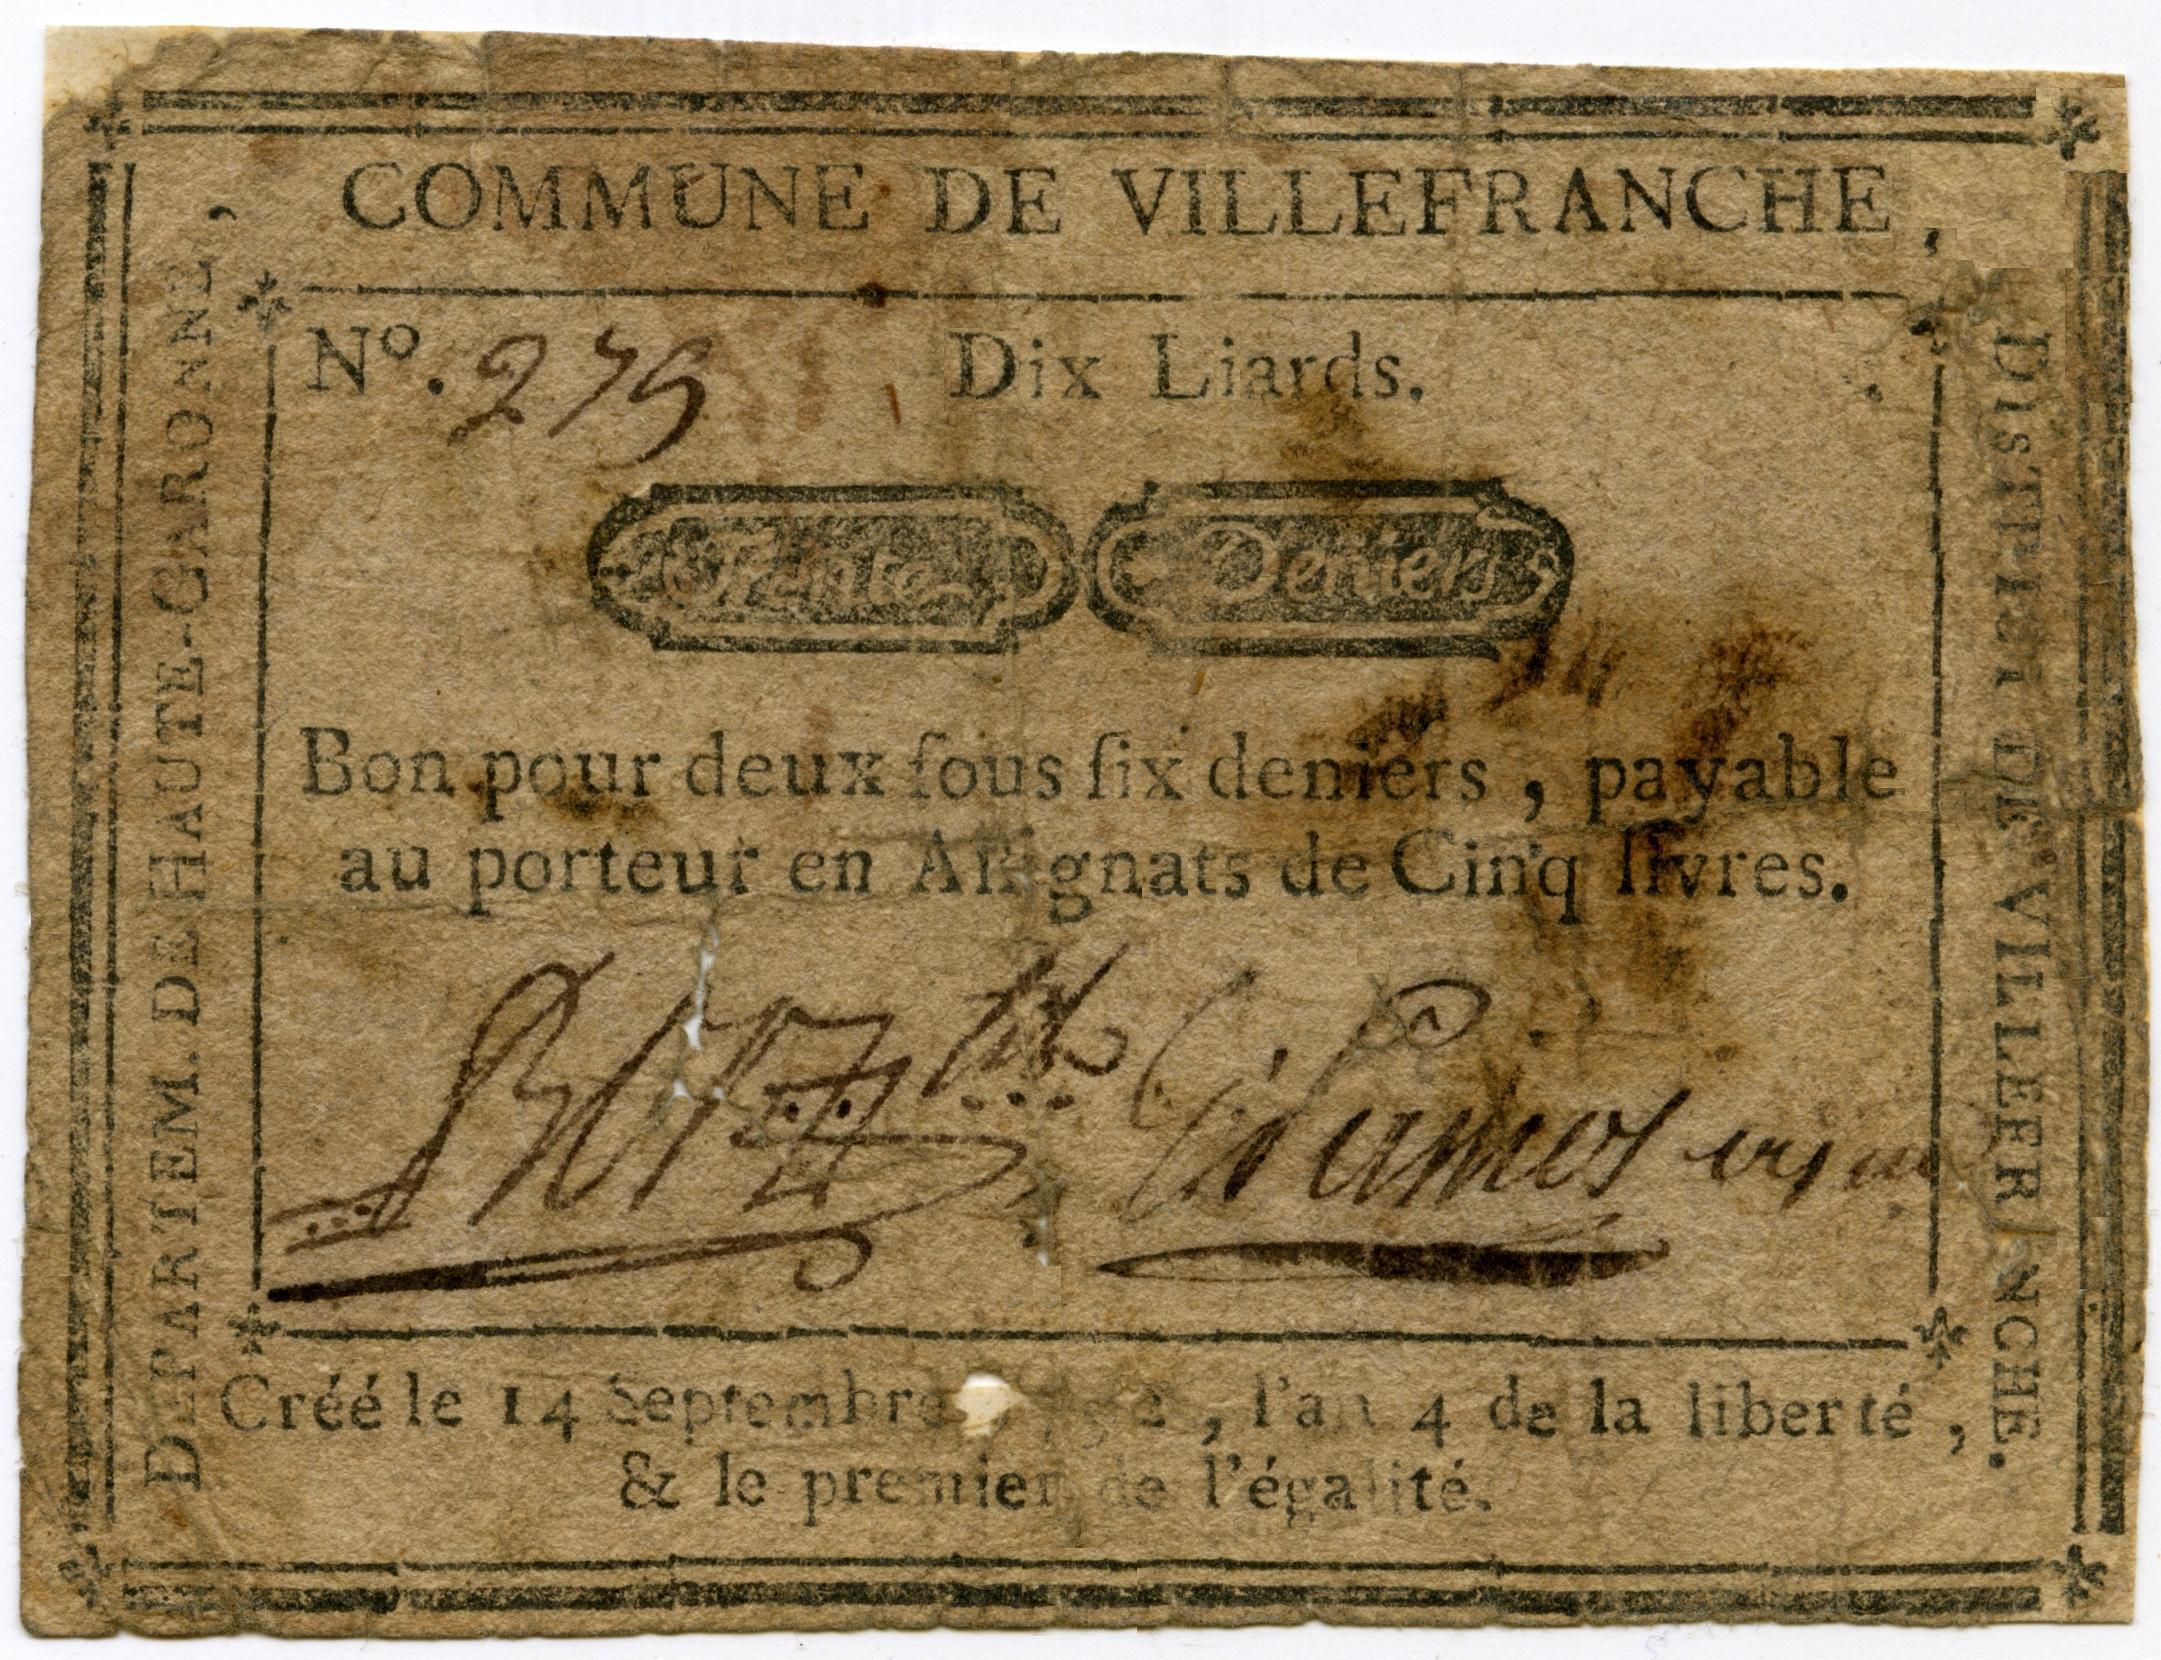 COMMUNE DE VILLEFRANCHE,
DÉPARTEM. DE HAUTE-GARONNE,
Nº. 279 Dix Liards.
Trente Deniers
Bon pour deux ſous ſix deniers, payable
au porteur en Aſſignats de Cinq livres.
Créé le 14 Septembre 1792, l'an 4 de la liberté,
& le premier de l'égalité.
DISTRICT DE VILLEFRANCHE.